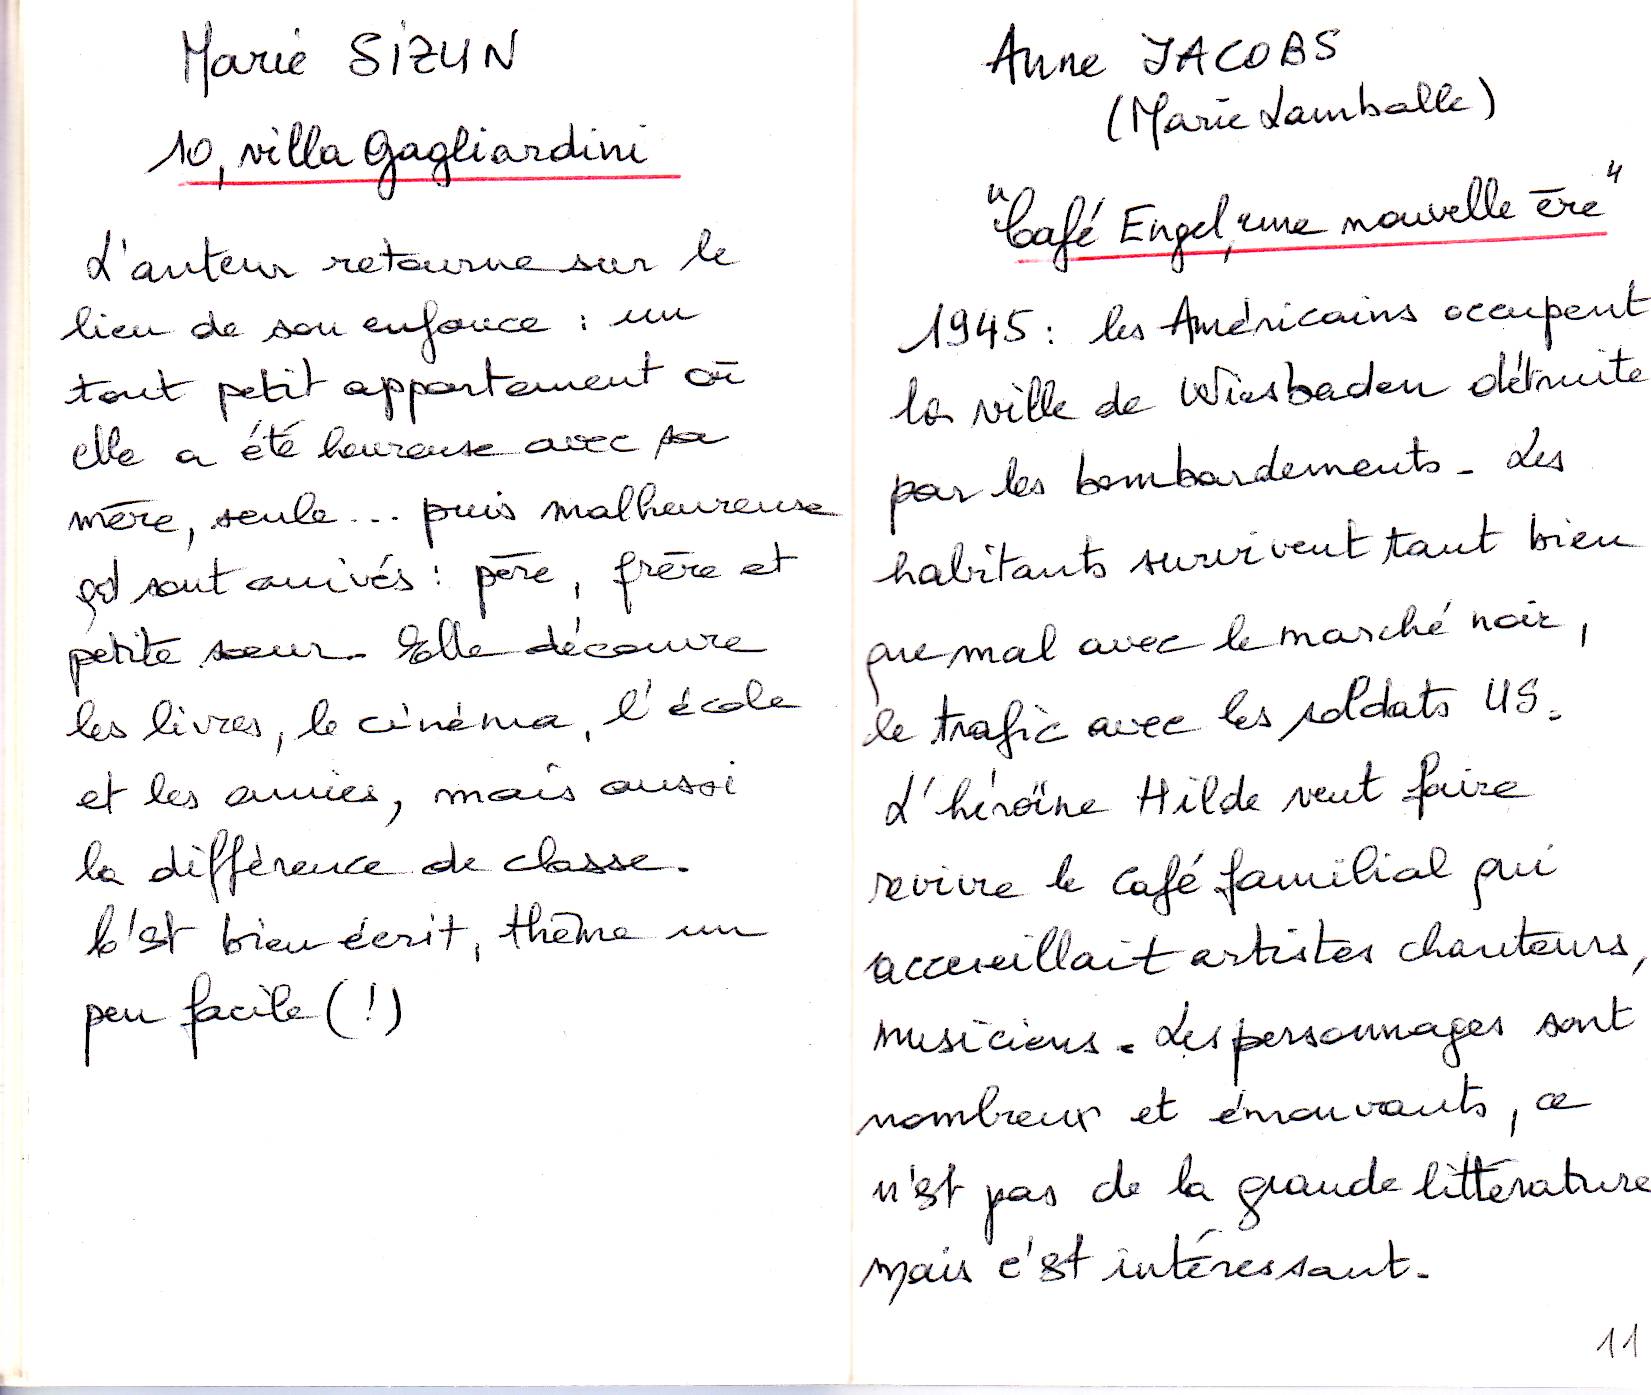 Marie SIZUN
10, villa Gagliardini
L'auteur retourne sur le
lieu de son enfance : un
tout petit appartement où
elle a été heureuse avec sa
mère, seule... puis malheureuse
qd sont arrivés : père, frère et
petite sœur. Elle découvre
les livres, le cinéma, l'école
et les amies, mais aussi
la différence de classe.
C'est bien écrit, thème un
peu facile (!)
Anne JACOBS
(Marie Lamballe)
"Café Engel, une nouvelle ère"
1945 : les Américains occupent
la ville de Wiesbaden détruite
par les bombardements. Les
habitants survivent tant bien
que mal avec le marché noir,
le trafic avec les soldats US.
L'héroïne Hilde veut faire
revivre le café familial qui
accueillait artistes chanteurs,
musiciens. Les personnages sont
nombreux et émouvants, ce
n'est pas de la grande littérature
mais c'est intéressant.
11